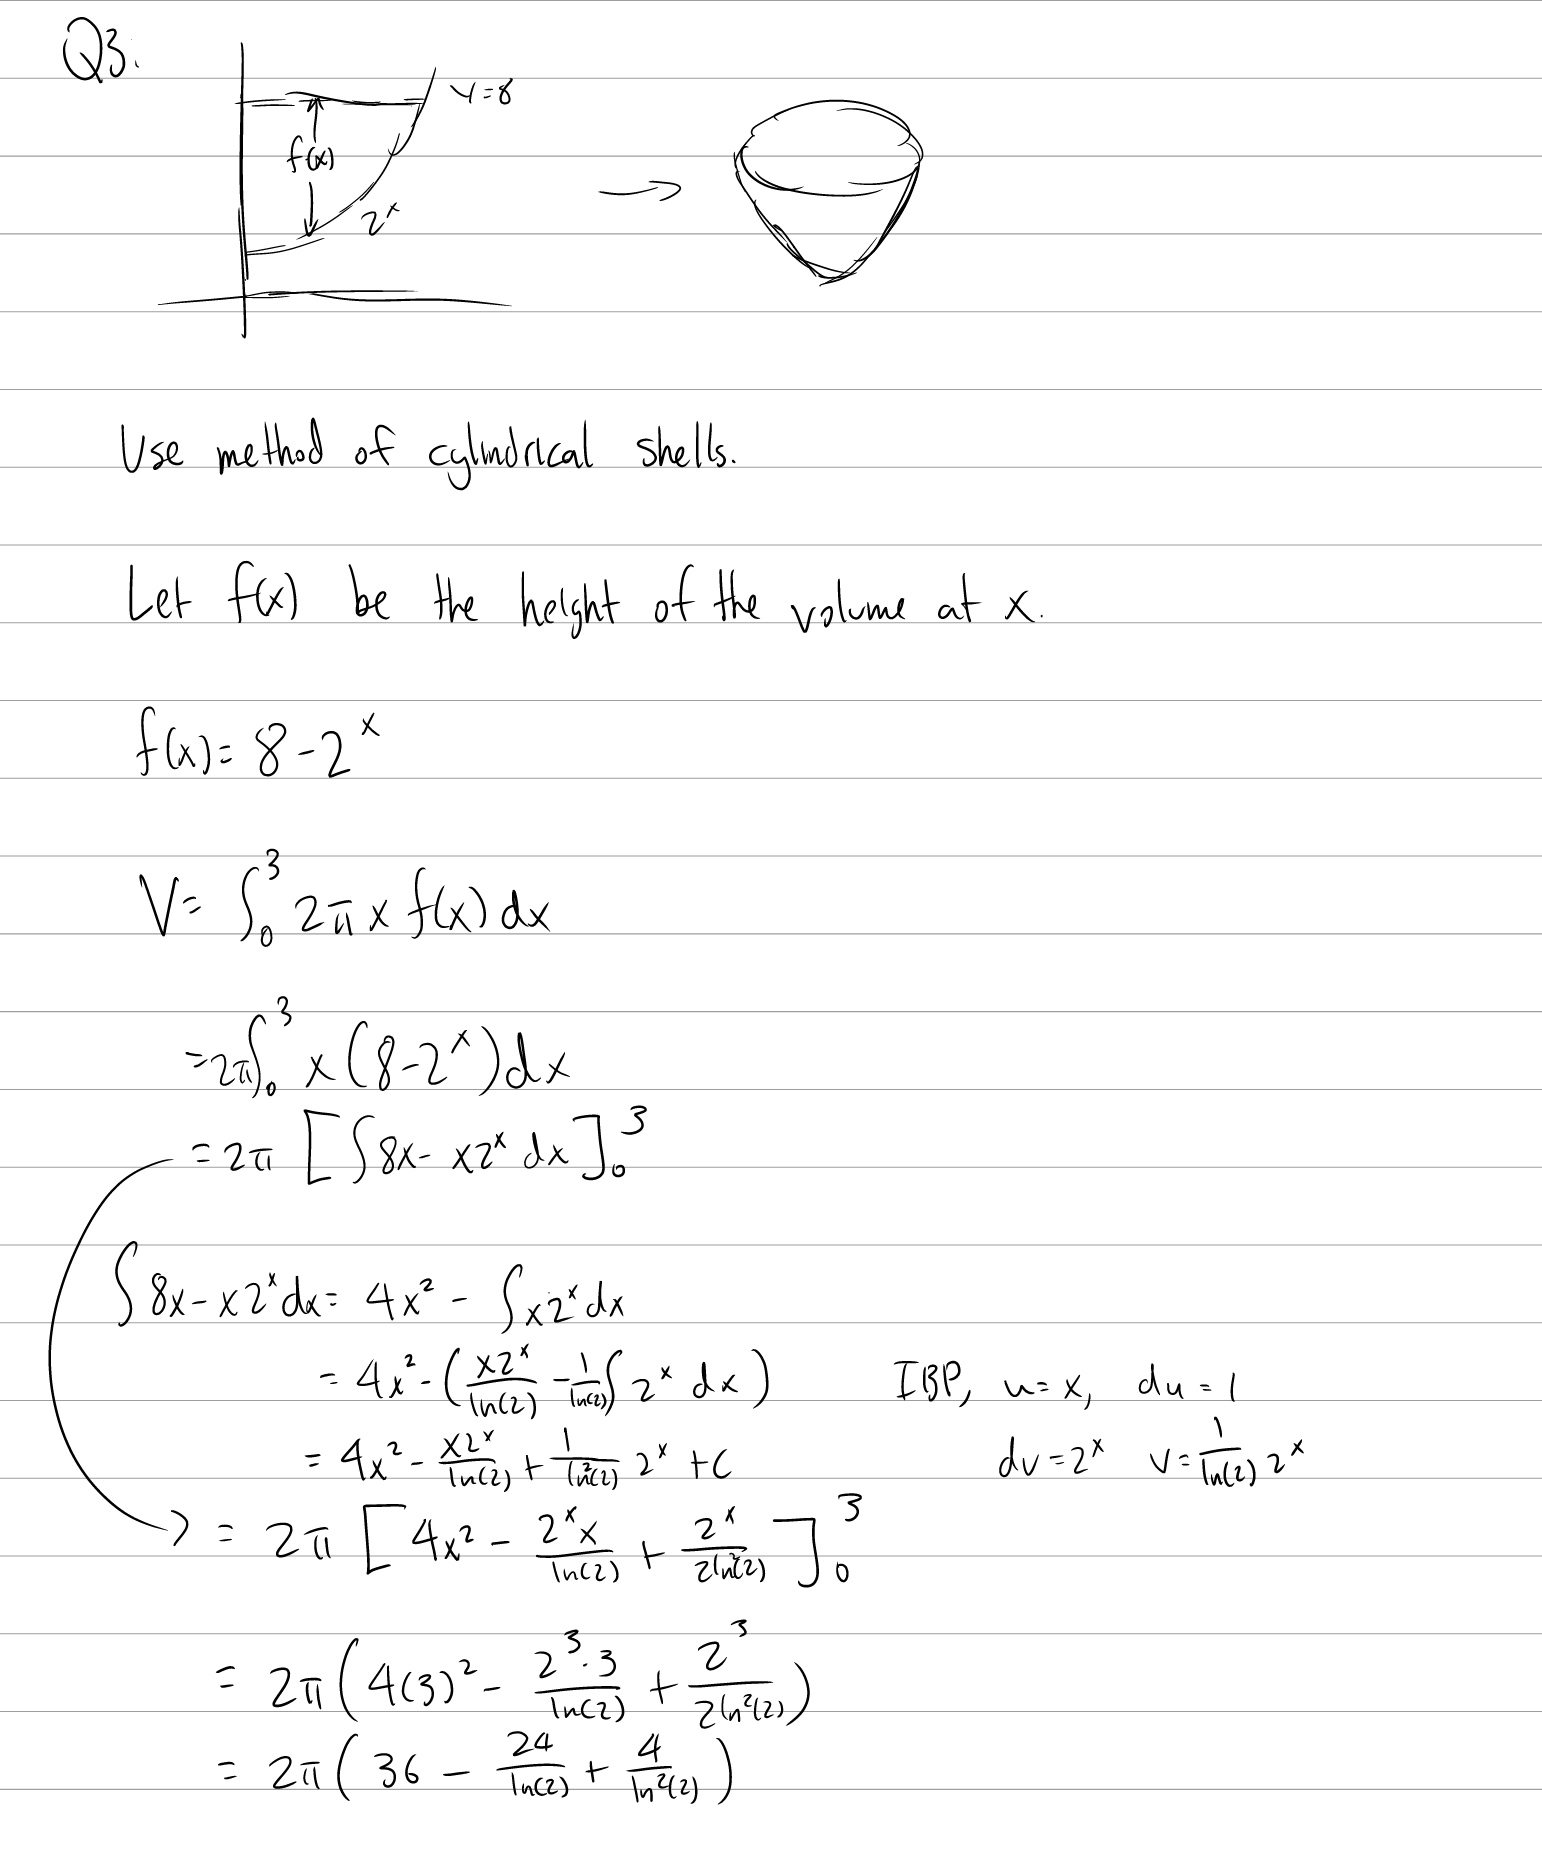 Q3.
y=8
f(x)
2^x
Use method of cylindrical shells.
Let f(x) be the height of the volume at x.
f(x)= 8-2^x
V= ∫_0^3 2π x f(x) dx
=2π∫_0^3 x(8-2^x)dx
= 2π [∫8x- x2^x dx]_0^3
∫8x-x2^x dx= 4x^2 - ∫x2^x dx
= 4x^2-(x2^x/ln(2) - 1/ln(2) ∫2^x dx) IBP, u=x, du=1
= 4x^2 - x2^x/ln(2) + 1/ln^2(2) 2^x +C dv=2^x v=1/ln(2) 2^x
= 2π [4x^2 - 2^x x/ln(2) + 2^x/2ln^2(2)]_0^3
= 2π(4(3)^2 - 2^3·3/ln(2) + 2^3/2ln^2(2))
= 2π(36 - 24/ln(2) + 4/ln^2(2))